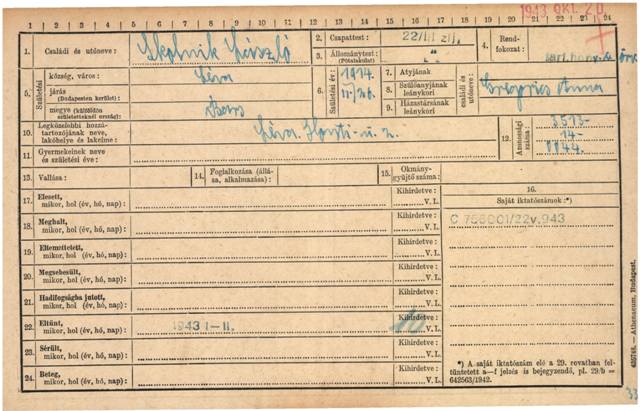 1943 OKT. 20.
1 2 3 4 5 6 7 8 9 10 11 12 13 14 15 16 17 18 19 20 21 22 23 24
1. Családi és utóneve: Skolnik László
2. Csapattest: 22/III. zlj.
3. Állománytest: (Pótalakulat) "
4. Rendfokozat:
5. Születési
község, város: Léva
járás (Budapesten kerület):
megye (külföldön születetteknél ország): Bars
6. Születési év: 1914. II. 26.
7. Atyjának
8. Szülőanyjának leánykori
9. Házastársának leánykori
családi és utóneve:
Anna
10. Legközelebbi hozzátartozójának neve, lakóhelye és lakcíme: Léva, Horti-u. 2.
11. Gyermekeinek neve és születési éve:
12. Azonossági száma: 3513-
14-
0044.
13. Vallása:
14. Foglalkozása (állása, alkalmazása):
15. Okmánygyűjtő száma:
16. Saját iktatószámok:*)
17. Elesett, mikor, hol (év, hó, nap): Kihirdetve: V. I.
18. Meghalt, mikor, hol (év, hó, nap): Kihirdetve: V. I.
C 756001/22v.943
19. Eltemettetett, mikor, hol (év, hó, nap): Kihirdetve: V. I.
20. Megsebesült, mikor, hol (év, hó, nap): Kihirdetve: V. I.
21. Hadifogságba jutott, mikor, hol (év, hó, nap): Kihirdetve: V. I.
22. Eltünt, mikor, hol (év, hó, nap): 1943 I-II. Kihirdetve: V. I.
10
23. Sérült, mikor, hol (év, hó, nap): Kihirdetve: V. I.
24. Beteg, mikor, hol (év, hó, nap): Kihirdetve: V. I.
*) A saját iktatószám elé a 29. rovatban feltüntetett a—f jelzés is bejegyzendő, pl. 29/b = 642563/1942.
— Athenaeum, Budapest.